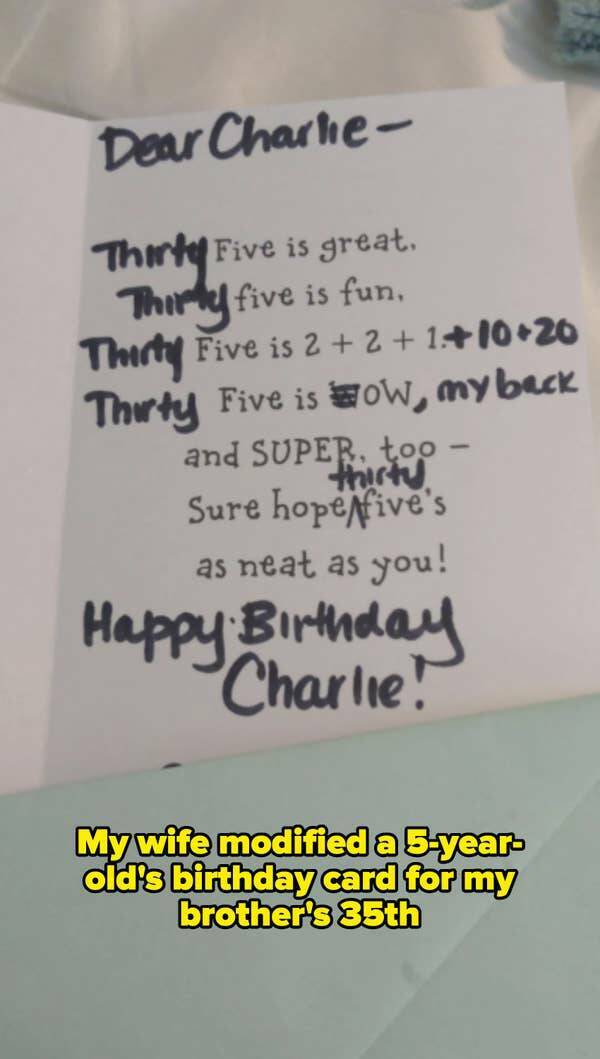 Dear Charlie –
Thirty Five is great,
Thirty five is fun,
Thirty Five is 2 + 2 + 1.+10+20
Thirty Five is OW, my back
and SUPER, too –
thirty
Sure hope ^ five's
as neat as you!
Happy Birthday
Charlie!
My wife modified a 5-year-
old's birthday card for my
brother's 35th